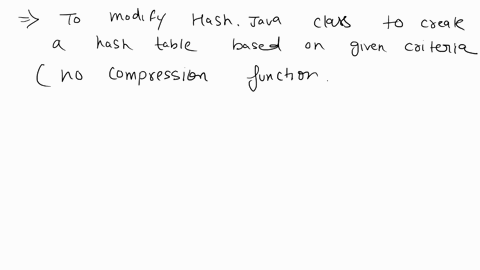 ⇒ To modify Hash.Java class to create
a hash table based on given criteria
( no compression function.